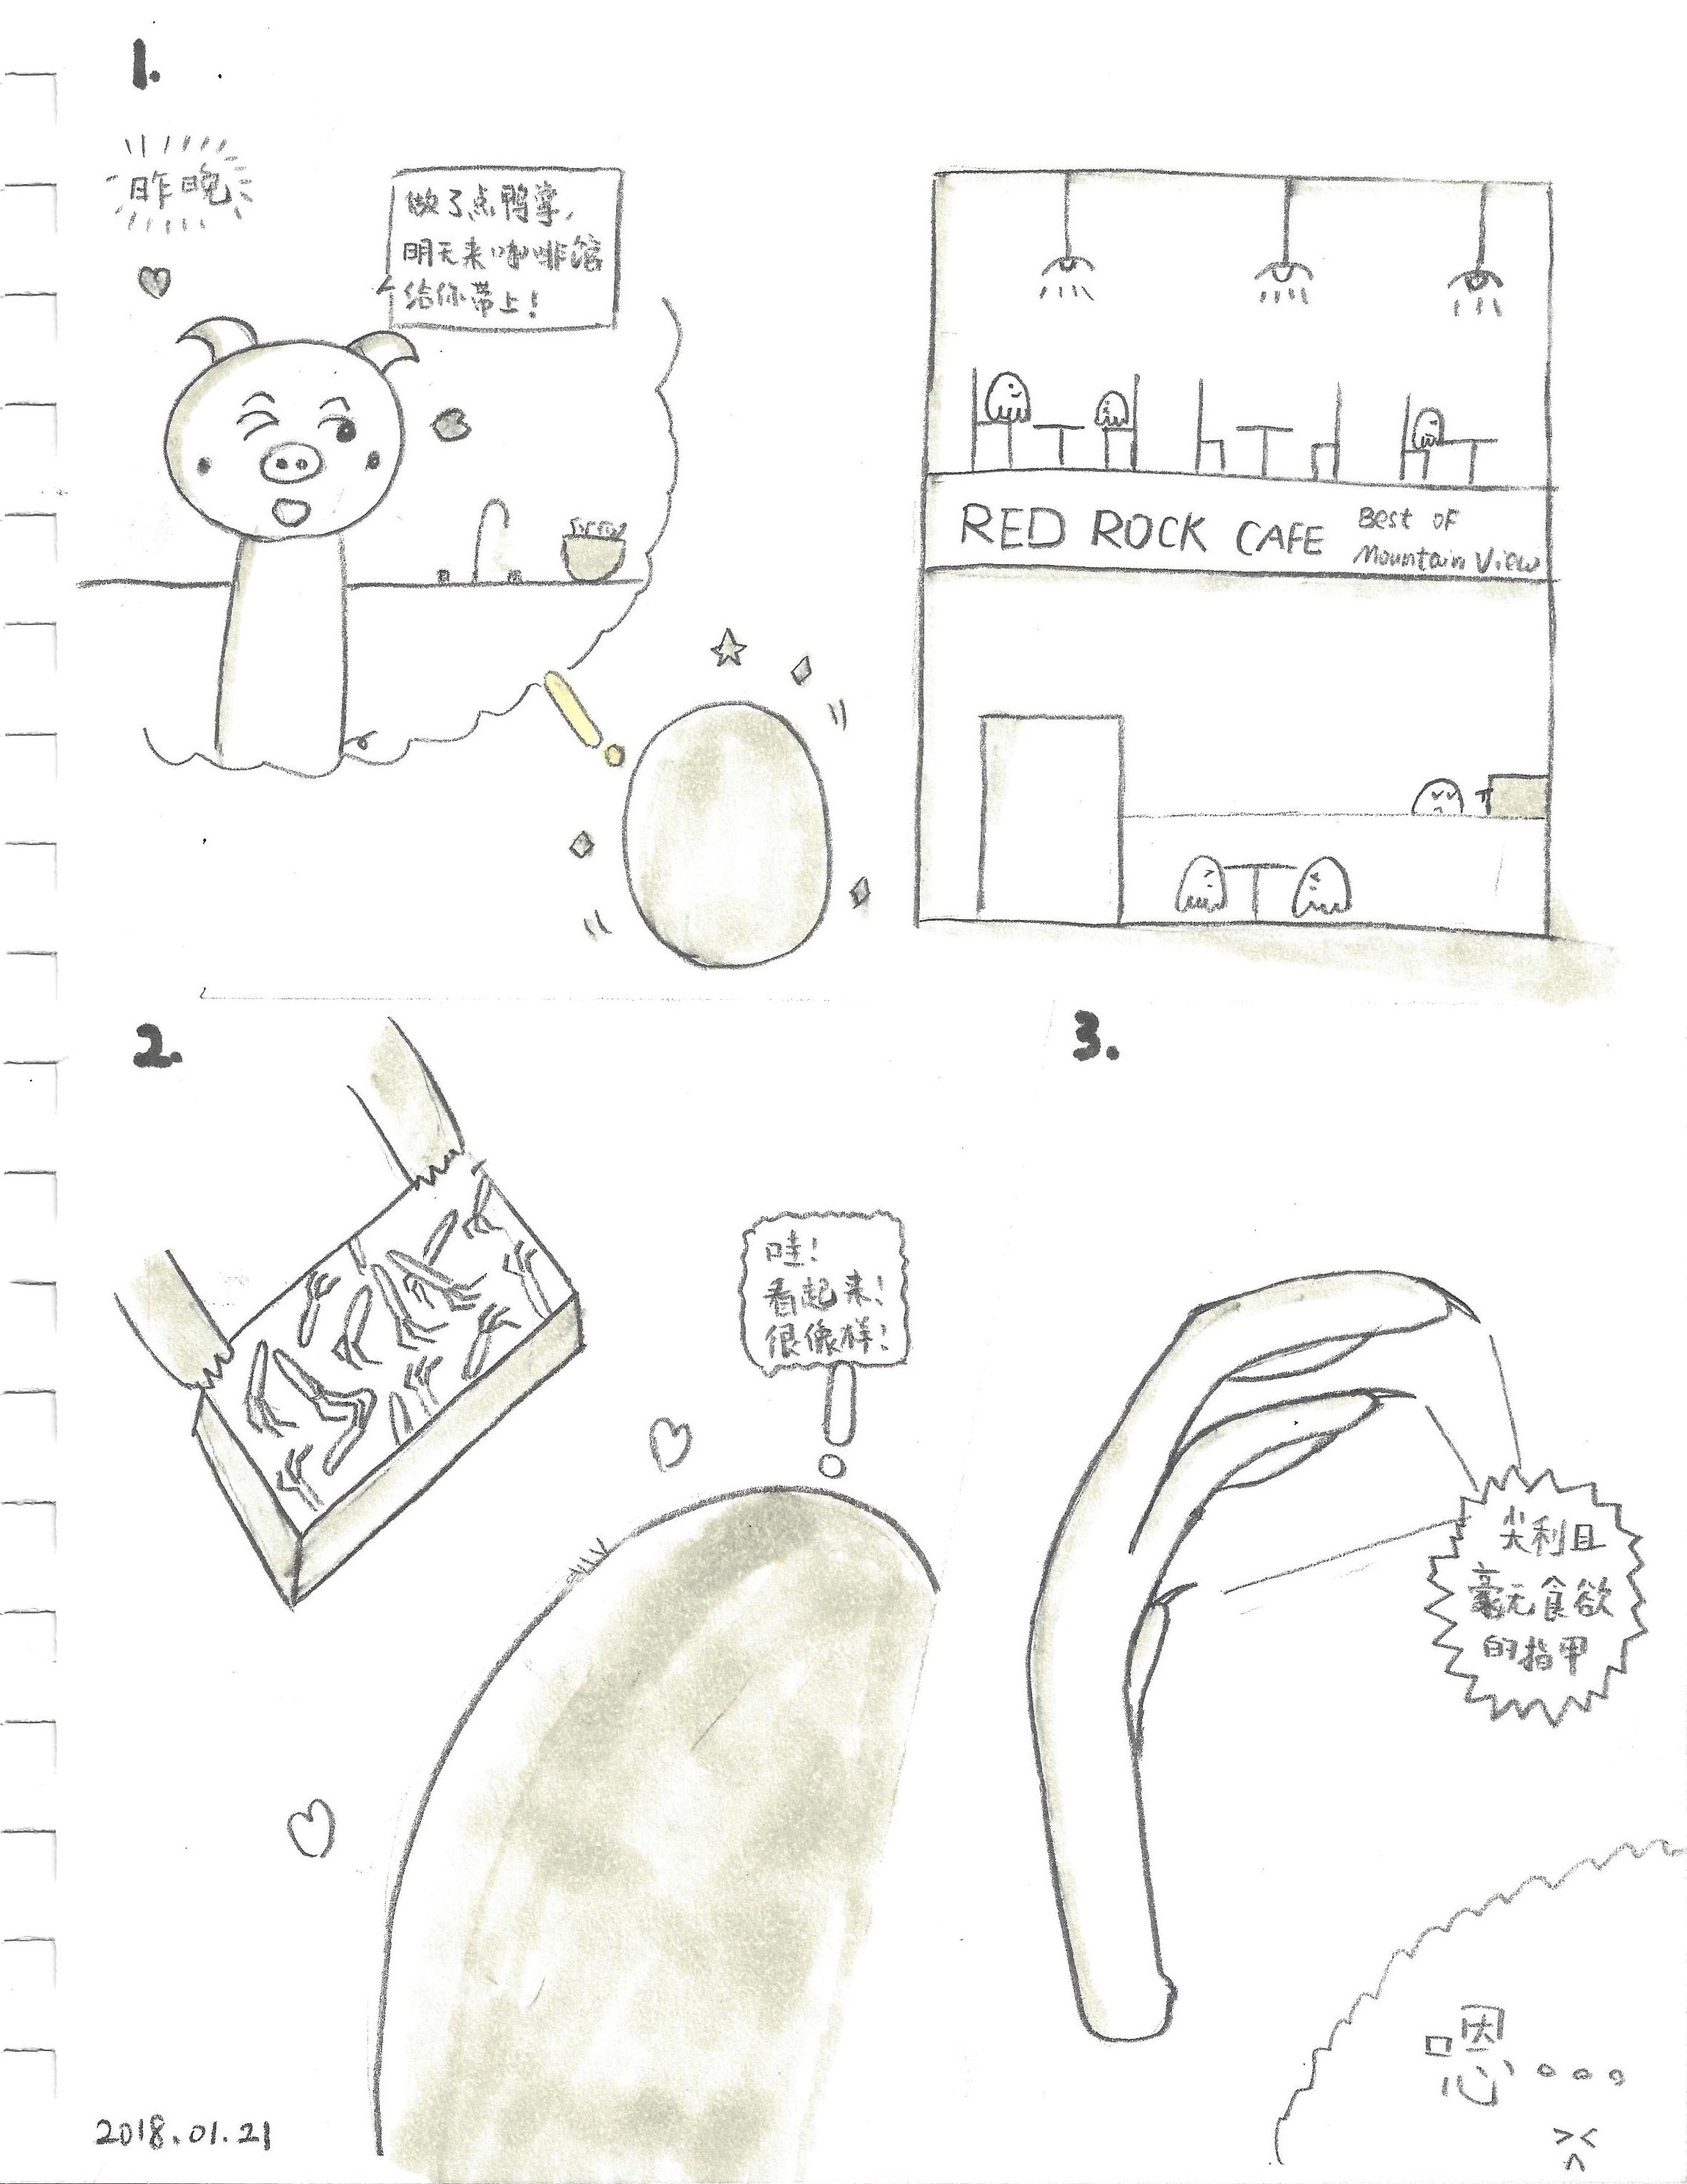 1.
昨晚
做了点鸭掌,
明天来咖啡馆
给你带上!
RED ROCK CAFE
Best of
Mountain View
2.
哇!
看起来!
很像样!
3.
尖利且
毫无食欲
的指甲
嗯...
2018.01.21